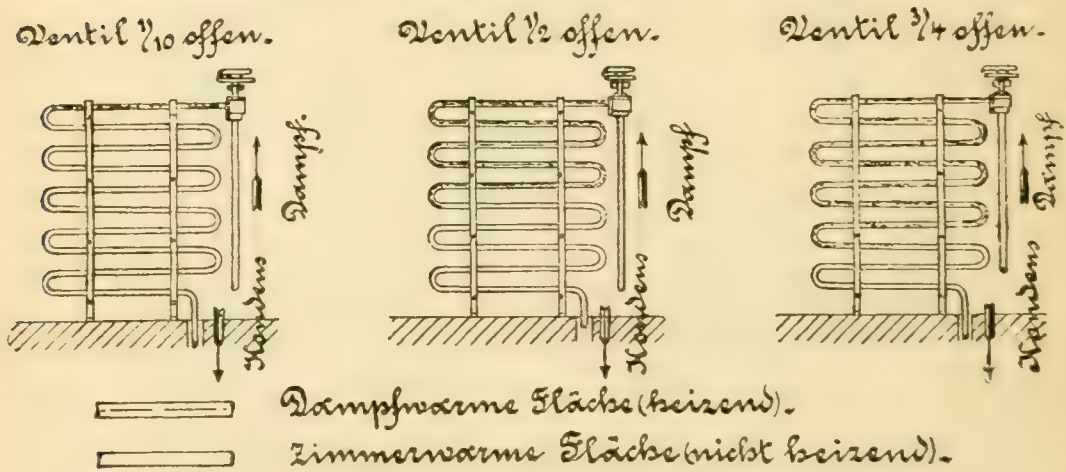 Ventil 1/10 offen.
Ventil 1/2 offen.
Ventil 3/4 offen.
Dampf.
Kondens
Dampf
Kondens
Dampf
Kondens
Dampfwarme Fläche (heizend).
Zimmerwarme Fläche (nicht heizend).